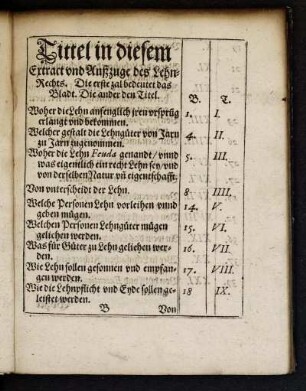 Tittel in diesem
Extract vnd Außzuge des Lehn-
Rechts. Die erste zal bedeutet das
Bladt. Die ander den Titel. B. T.
Woher die Lehn anfenglich iren vrsprüg
erlangt vnd bekommen. 1. I.
Welcher gestalt die Lehngüter von Jarn
zu Jarn zugenommen. 4. II.
Woher die Lehn Feuda genandt / vnnd
was eigentlich ein recht Lehn sey, vnd
von derselben Natur vñ eigentschafft. 5. III.
Von vnterscheidt der Lehn. 8 IIII.
Welche Personen Lehn vorleihen vnnd
geben mügen. 14. V.
Welchen Personen Lehngüter mügen
geliehen werden. 15. VI.
Was für Güter zu Lehn geliehen wer-
den. 16. VII.
Wie Lehn sollen gesonnen vnd empfan-
gen werden. 17. VIII.
Wie die Lehnpflicht vnd Eyde sollen ge-
leistet werden. 18 IX.
B Von